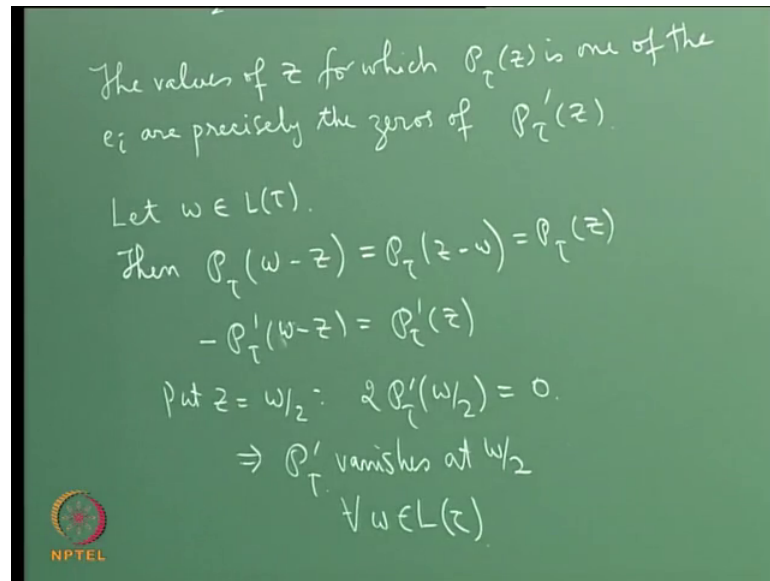 The values of z for which ℘_τ(z) is one of the
e_i are precisely the zeros of ℘_τ'(z).
Let ω ∈ L(τ).
Then ℘_τ(ω - z) = ℘_τ(z - ω) = ℘_τ(z)
- ℘_τ'(ω - z) = ℘_τ'(z)
Put z = ω/2 : 2℘_τ'(ω/2) = 0.
⇒ ℘_τ' vanishes at ω/2
∀ ω ∈ L(τ).
NPTEL